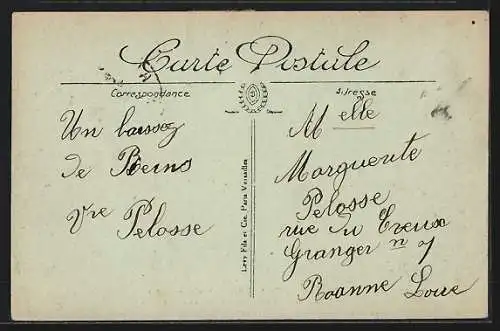 Carte Postale
Correspondance
Adresse
Un baiser
de Reims
Vve Pelosse
Levy Fils et Cie, Paris Versailles
Melle
Marguerite
Pelosse
rue du Creux
Granger n 7
Roanne Loire